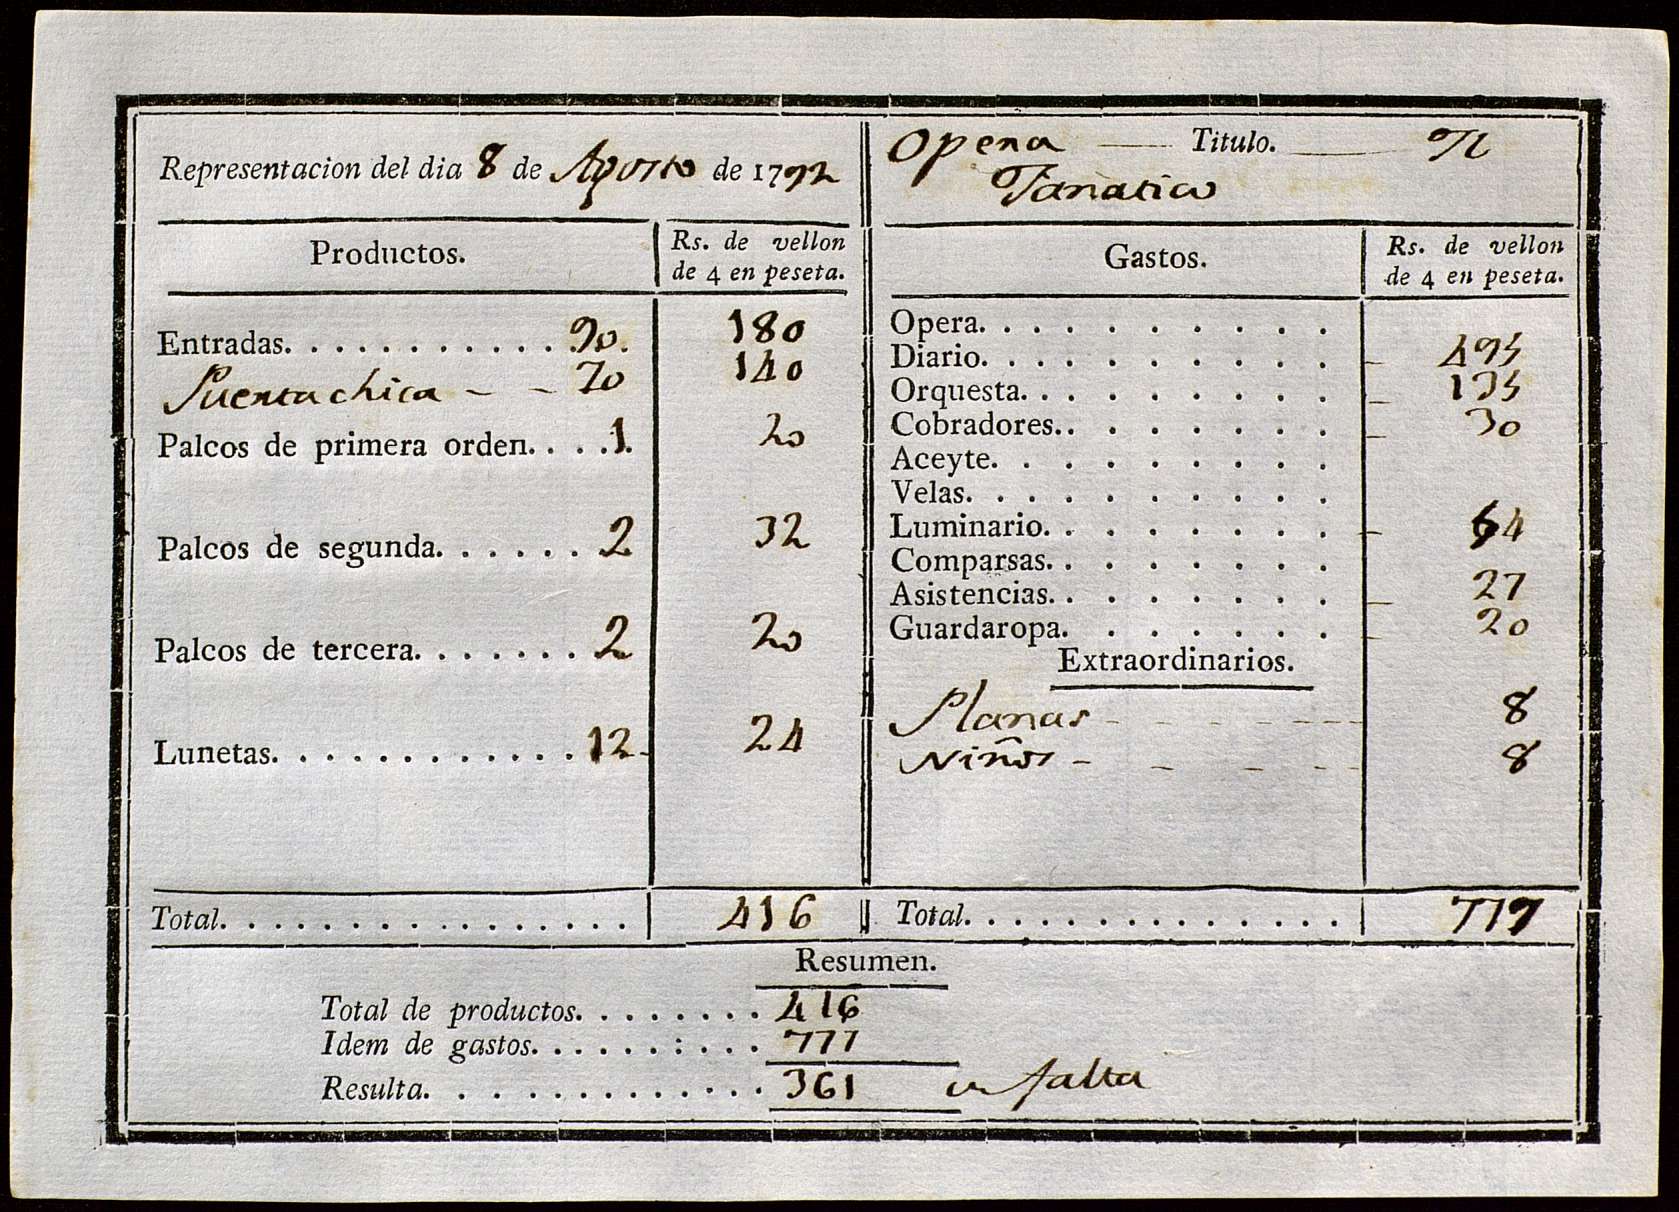 Representacion del dia 8 de Agosto de 1792
Opera Titulo. El
Fanatico
Productos. Rs. de vellon
de 4 en peseta.
Entradas. 90. 180
Puerta chica 70 140
Palcos de primera orden. 1. 20
Palcos de segunda. 2 32
Palcos de tercera. 2 20
Lunetas. 12 24
Total. 416
Gastos. Rs. de vellon
de 4 en peseta.
Opera.
Diario. 495
Orquesta. 135
Cobradores. 30
Aceyte.
Velas.
Luminario. 54
Comparsas.
Asistencias. 27
Guardaropa. 20
Extraordinarios.
Planas 8
Niños 8
Total. 777
Resumen.
Total de productos. 416
Idem de gastos. 777
Resulta. 361 en falta